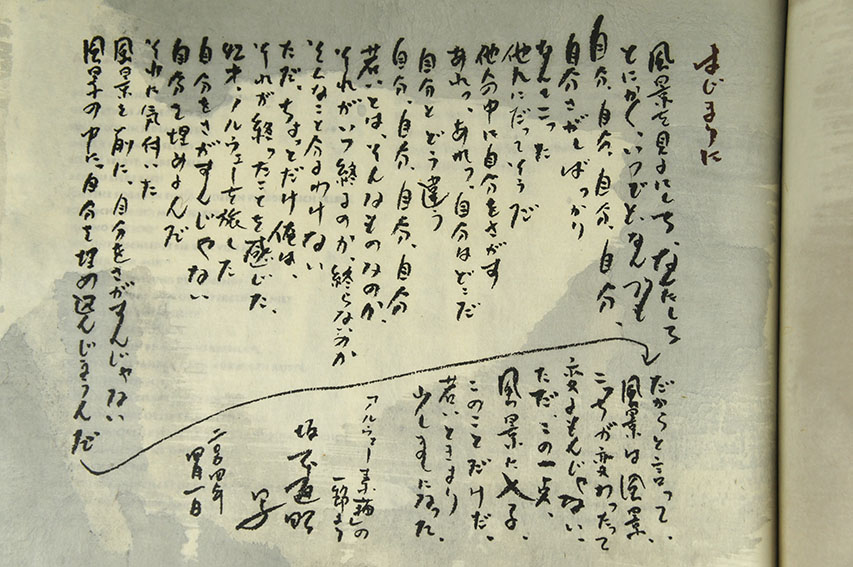 はじまりに
風景を見るにしても、なんにしろ
とにかく、いつなんどき、なんでも
自分、自分、自分、自分、自分、
自分さがしばっかり
なんもった
他人にだってそうだ
他人の中に自分をさがす
あれっ、あれっ、自分はどこだ
自分とどう違う
自分、自分、自分、自分、自分
若いとは、そんなものなのか、
それがいつ終るのか、終らないのか
そんなこと分るわけない
ただ、ちょっとだけ俺は、
それが終ったことを感じた、
ノルウェーを旅した
自分をさがすんじゃない
自分を埋めるんだ
それに気付いた
風景を前に、自分をさがすんじゃない
風景の中に、自分を埋め込んじまうんだ
だからと言って、
風景は風景、
こっちが変わったって
変るもんじゃない、
ただ、この一点、
風景に入る、
このことだけだ、
若いときより
少しましになった、
「ノルウェー素描」の
一節より
坂
二〇〇四年
一日